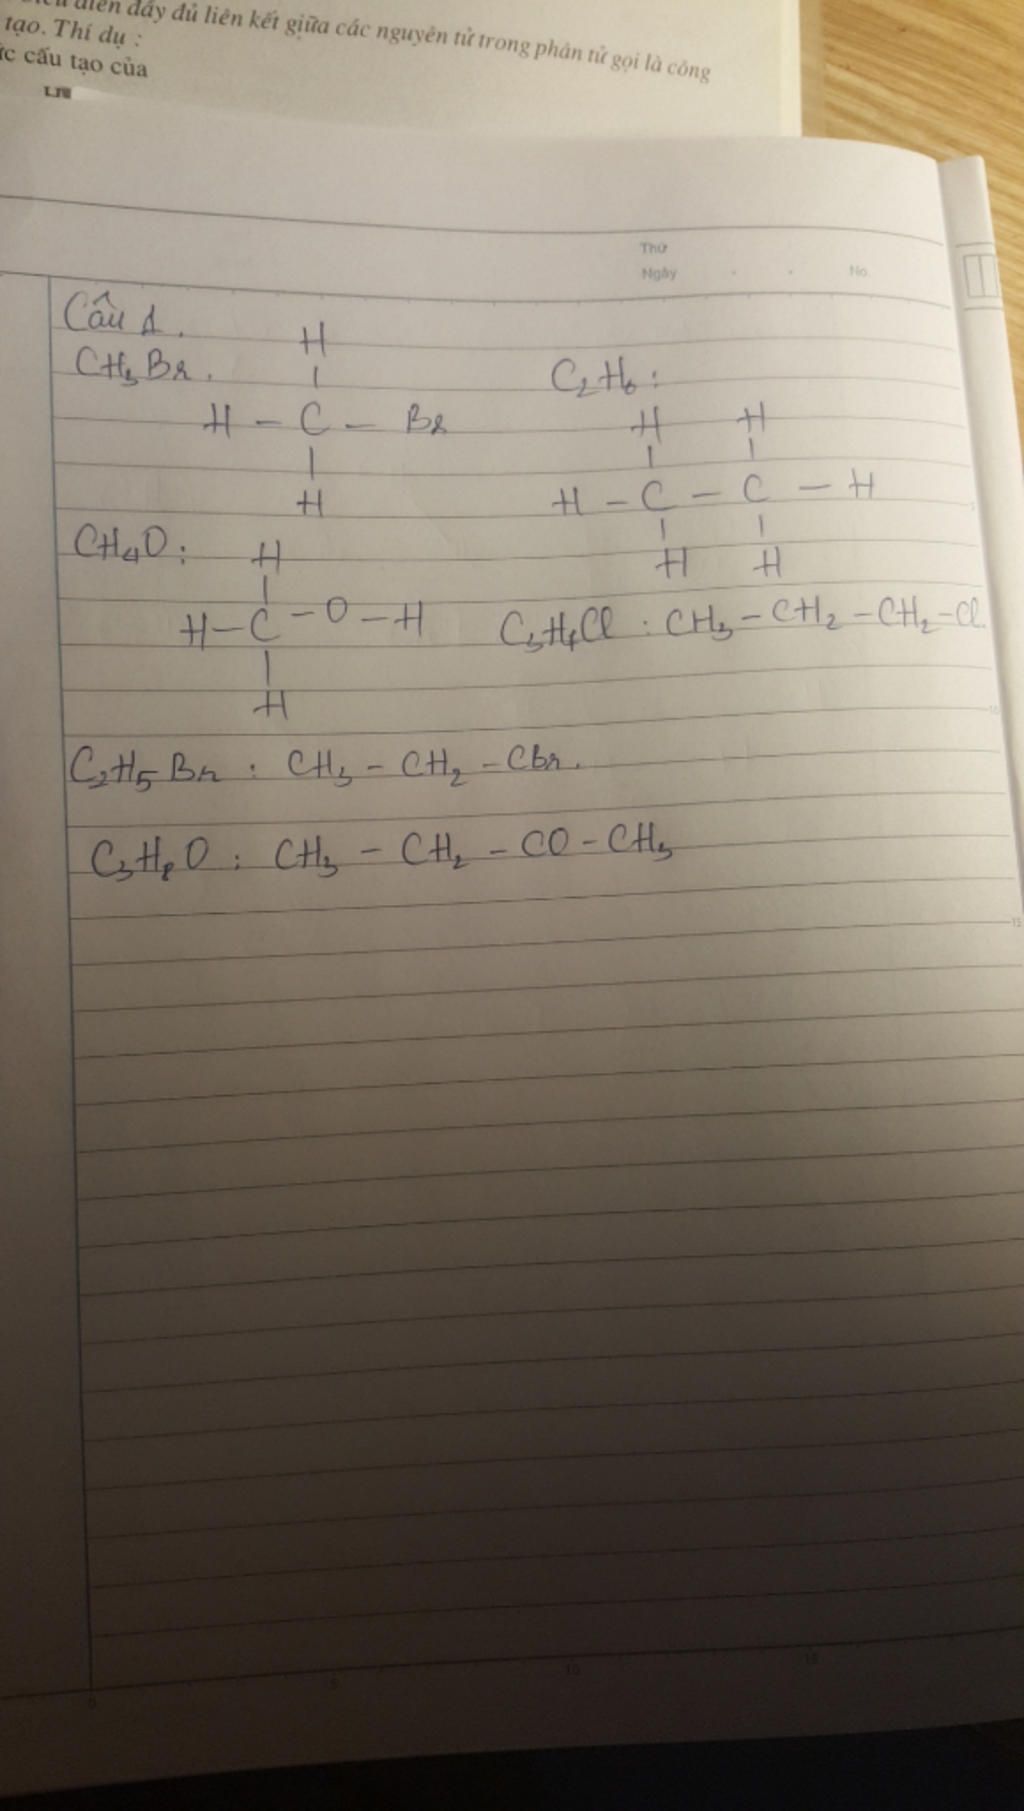 diễn đầy đủ liên kết giữa các nguyên tử trong phân tử gọi là công
tạo. Thí dụ :
cấu tạo của
Thứ
Ngày . . No.
Câu 1.
CH₃Br.
H
H – C – Br
H
C₂H₆:
H H
H – C – C – H
H H
CH₄O:
H
H – C – O – H
H
C₃H₇Cl : CH₃ – CH₂ – CH₂ – Cl.
C₂H₅Br : CH₃ – CH₂ – Cbr.
C₃H₈O : CH₃ – CH₂ – CO – CH₃
10
15
0 5 10 15